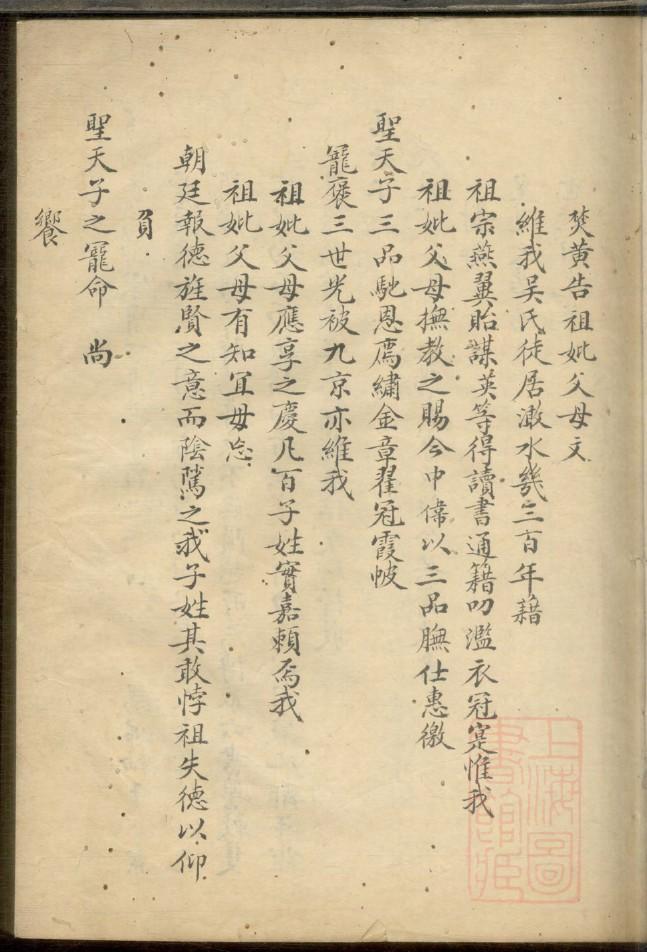 焚黃告祖妣父母文
維我吳氏徒居澉水幾三百年藉
祖宗燕翼貽謀英等得讀書通籍叨濫衣冠寔惟我
祖妣父母撫教之賜今中偉以三品膴仕惠徼
聖天子三品馳恩焉繡金章翟冠霞帔
寵褒三世光被九京亦維我
祖妣父母應享之慶凡百子姓實嘉賴焉我
祖妣父母有知宜毋忘
朝廷報德旌賢之意而陰騭之我子姓其敢悖祖失德以仰
負
聖天子之寵命 尚
饗
上海圖書館藏